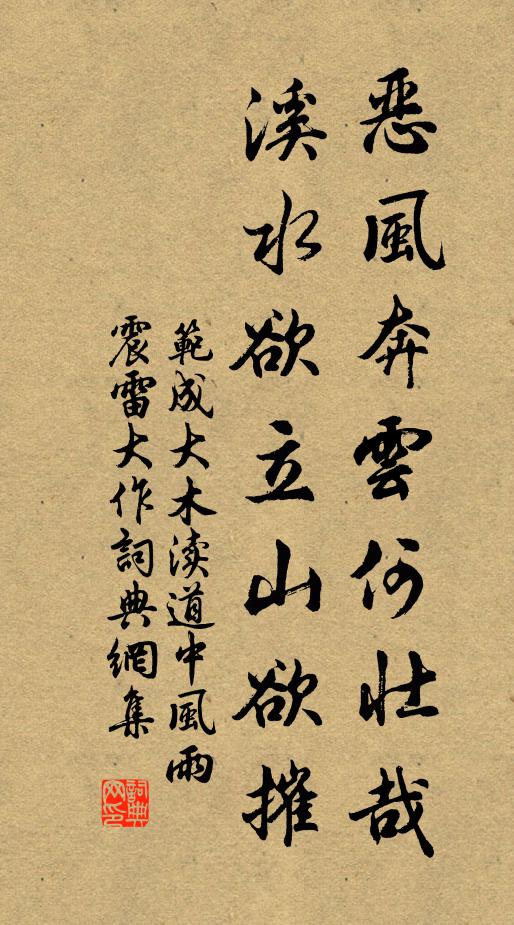 惡風奔雲何壯哉
溪水欲立山欲摧
範成大木渎道中風雨
震雷大作詞典網集
詞典
网印